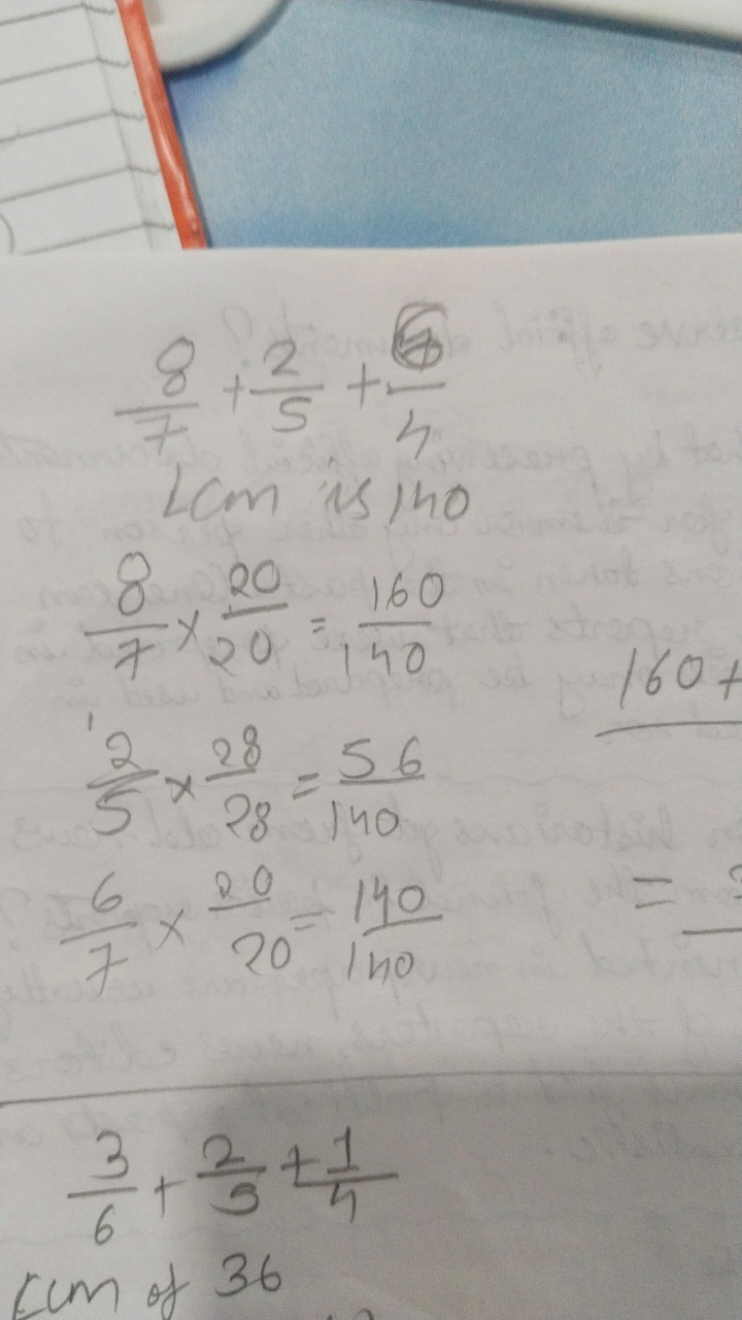 8/7 + 2/5 + /4
LCM is 140
8/7 × 20/20 = 160/140
160+
2/5 × 28/28 = 56/140
6/7 × 20/20 = 140/140
=
3/6 + 2/5 + 1/4
LCM of 36